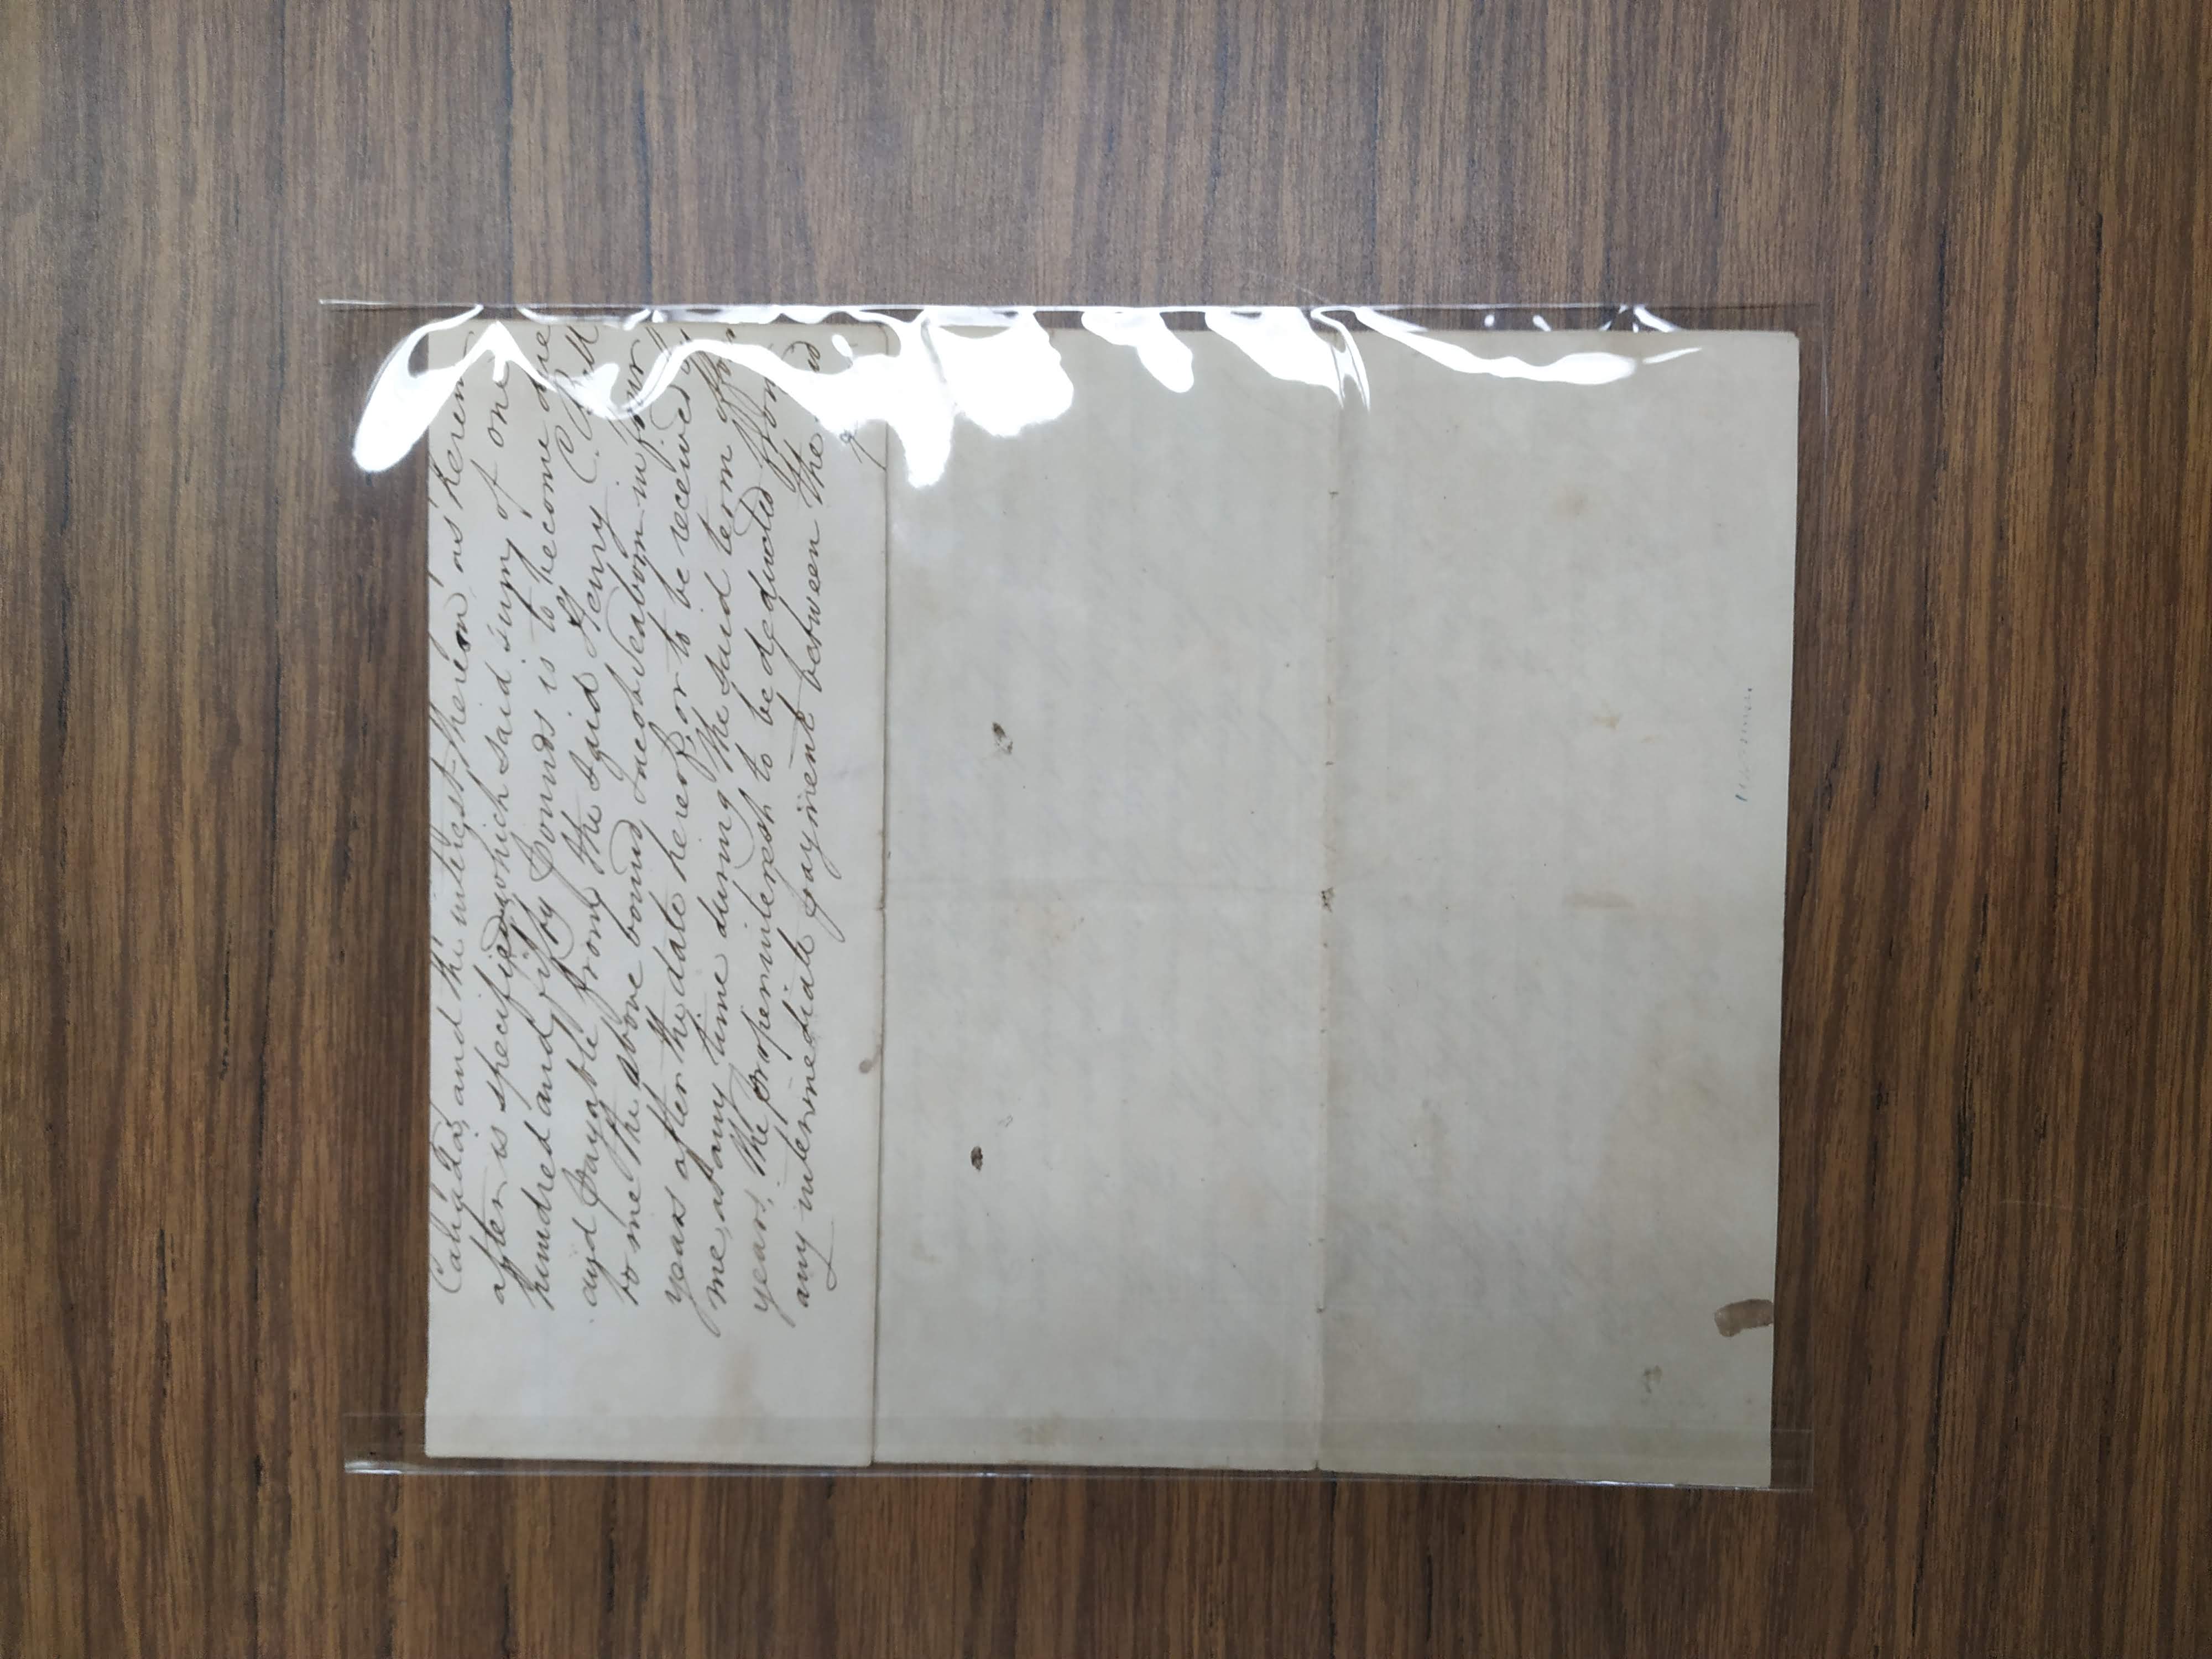 Canada, and the interest thereon, as herein
after is specified, which said sum, of one
hundred and fifty pounds is to become due
and payable from the said Henry C.
to me the above bound, Jacob Seaborn in four
years after the date hereof, or to be received by
me, at any time during the said term of four
years, the proper interest to be deducted from
any intermediate payment between the said